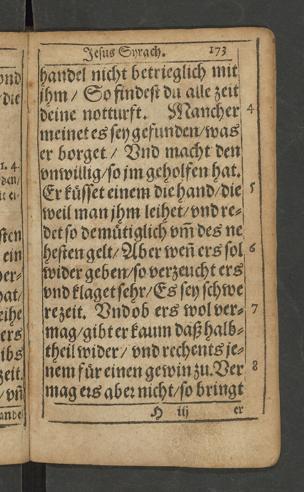 Jesus Syrach. 173
handel nicht betrieglich mit
jhm / So findest du alle zeit
deine notturft. Mancher 4
meinet es sey gefunden / was
er borget / Vnd macht den
vnwillig / so jm geholfen hat.
Er küsset einem die hand / die 5
weil man jhm leihet / vnd re-
det so demütiglich vm̃ des ne
hesten gelt / Aber weñ ers sol 6
wider geben / so verzeucht ers
vnd klaget sehr / Es sey schwe
re zeit. Vnd ob ers wol ver- 7
mag / gibt er kaum daß halb-
theil wider / vnd rechents je-
nem für einen gewin zu. Ver 8
mag ers aber nicht / so bringt
H iij er